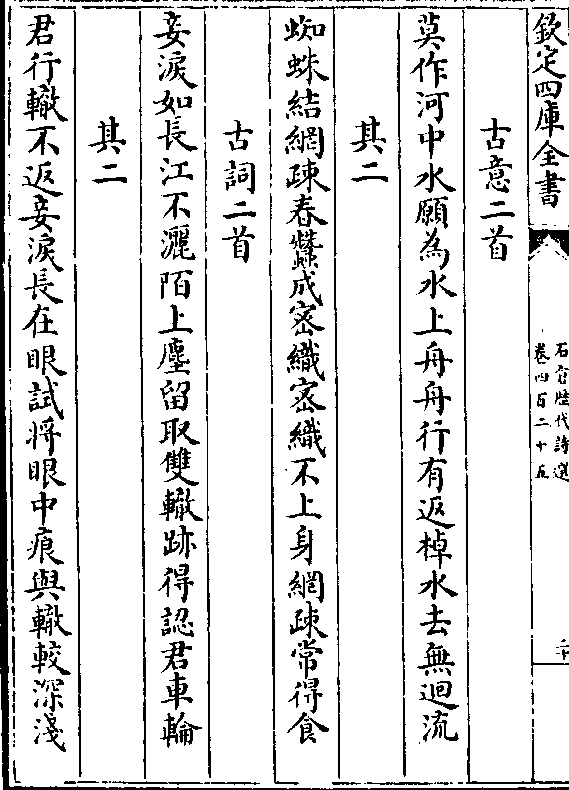 欽定四庫全書
石倉歷代詩選
卷四百二十五
二十
古意二首
莫作河中水願為水上舟舟行有返棹水去無迴流
其二
蜘蛛結網疎春蠶成密織密織不上身網疎常得食
古詞二首
妾淚如長江不灑陌上塵留取雙轍跡得認君車輪
其二
君行轍不返妾淚長在眼試將眼中痕與轍較深淺